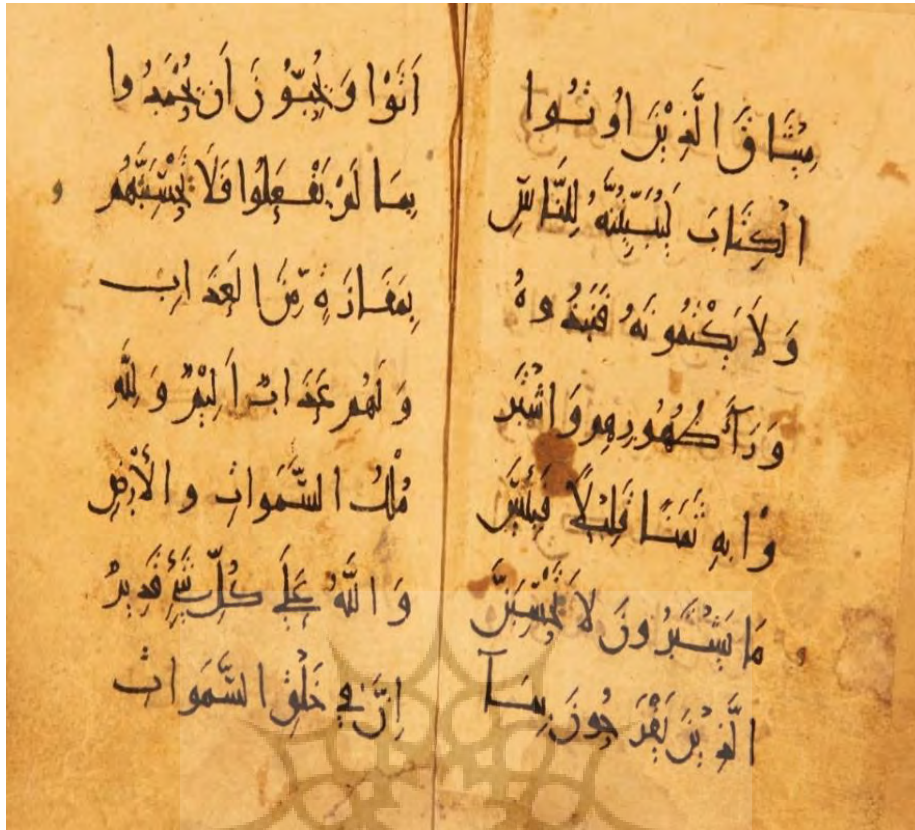 مِيثَاقَ الَّذِينَ اُوتُوا
الْكِتَابَ لَيُبَيِّنُنَّهُ لِلنَّاسِ
وَلَا يَكْتُمُونَهُ فَنَبَذُوهُ
وَرَآءَ ظُهُورِهِمْ وَاشْتَرَ
وْا بِهِ ثَمَنًا قَلِيْلًا فَبِئْسَ
مَا يَشْتَرُونَ لَا يَحْسَبَنَّ
الَّذِيْنَ يَفْرَحُونَ بِمَآ
اَتَوْا وَيُحِبُّونَ اَنْ يُحْمَدُوا
بِمَا لَمْ يَفْعَلُوا فَلَا يَحْسَبَنَّهُمْ
بِمَفَازَةٍ مِّنَ الْعَذَابِ
وَلَهُمْ عَذَابٌ اَلِيْمٌ وَلِلّٰهِ
مُلْكُ السَّمَوَاتِ وَالْأَرْضِ
وَاللّٰهُ عَلَى كُلِّ شَيْءٍ قَدِيرٌ
اِنَّ فِي خَلْقِ السَّمَوَاتِ